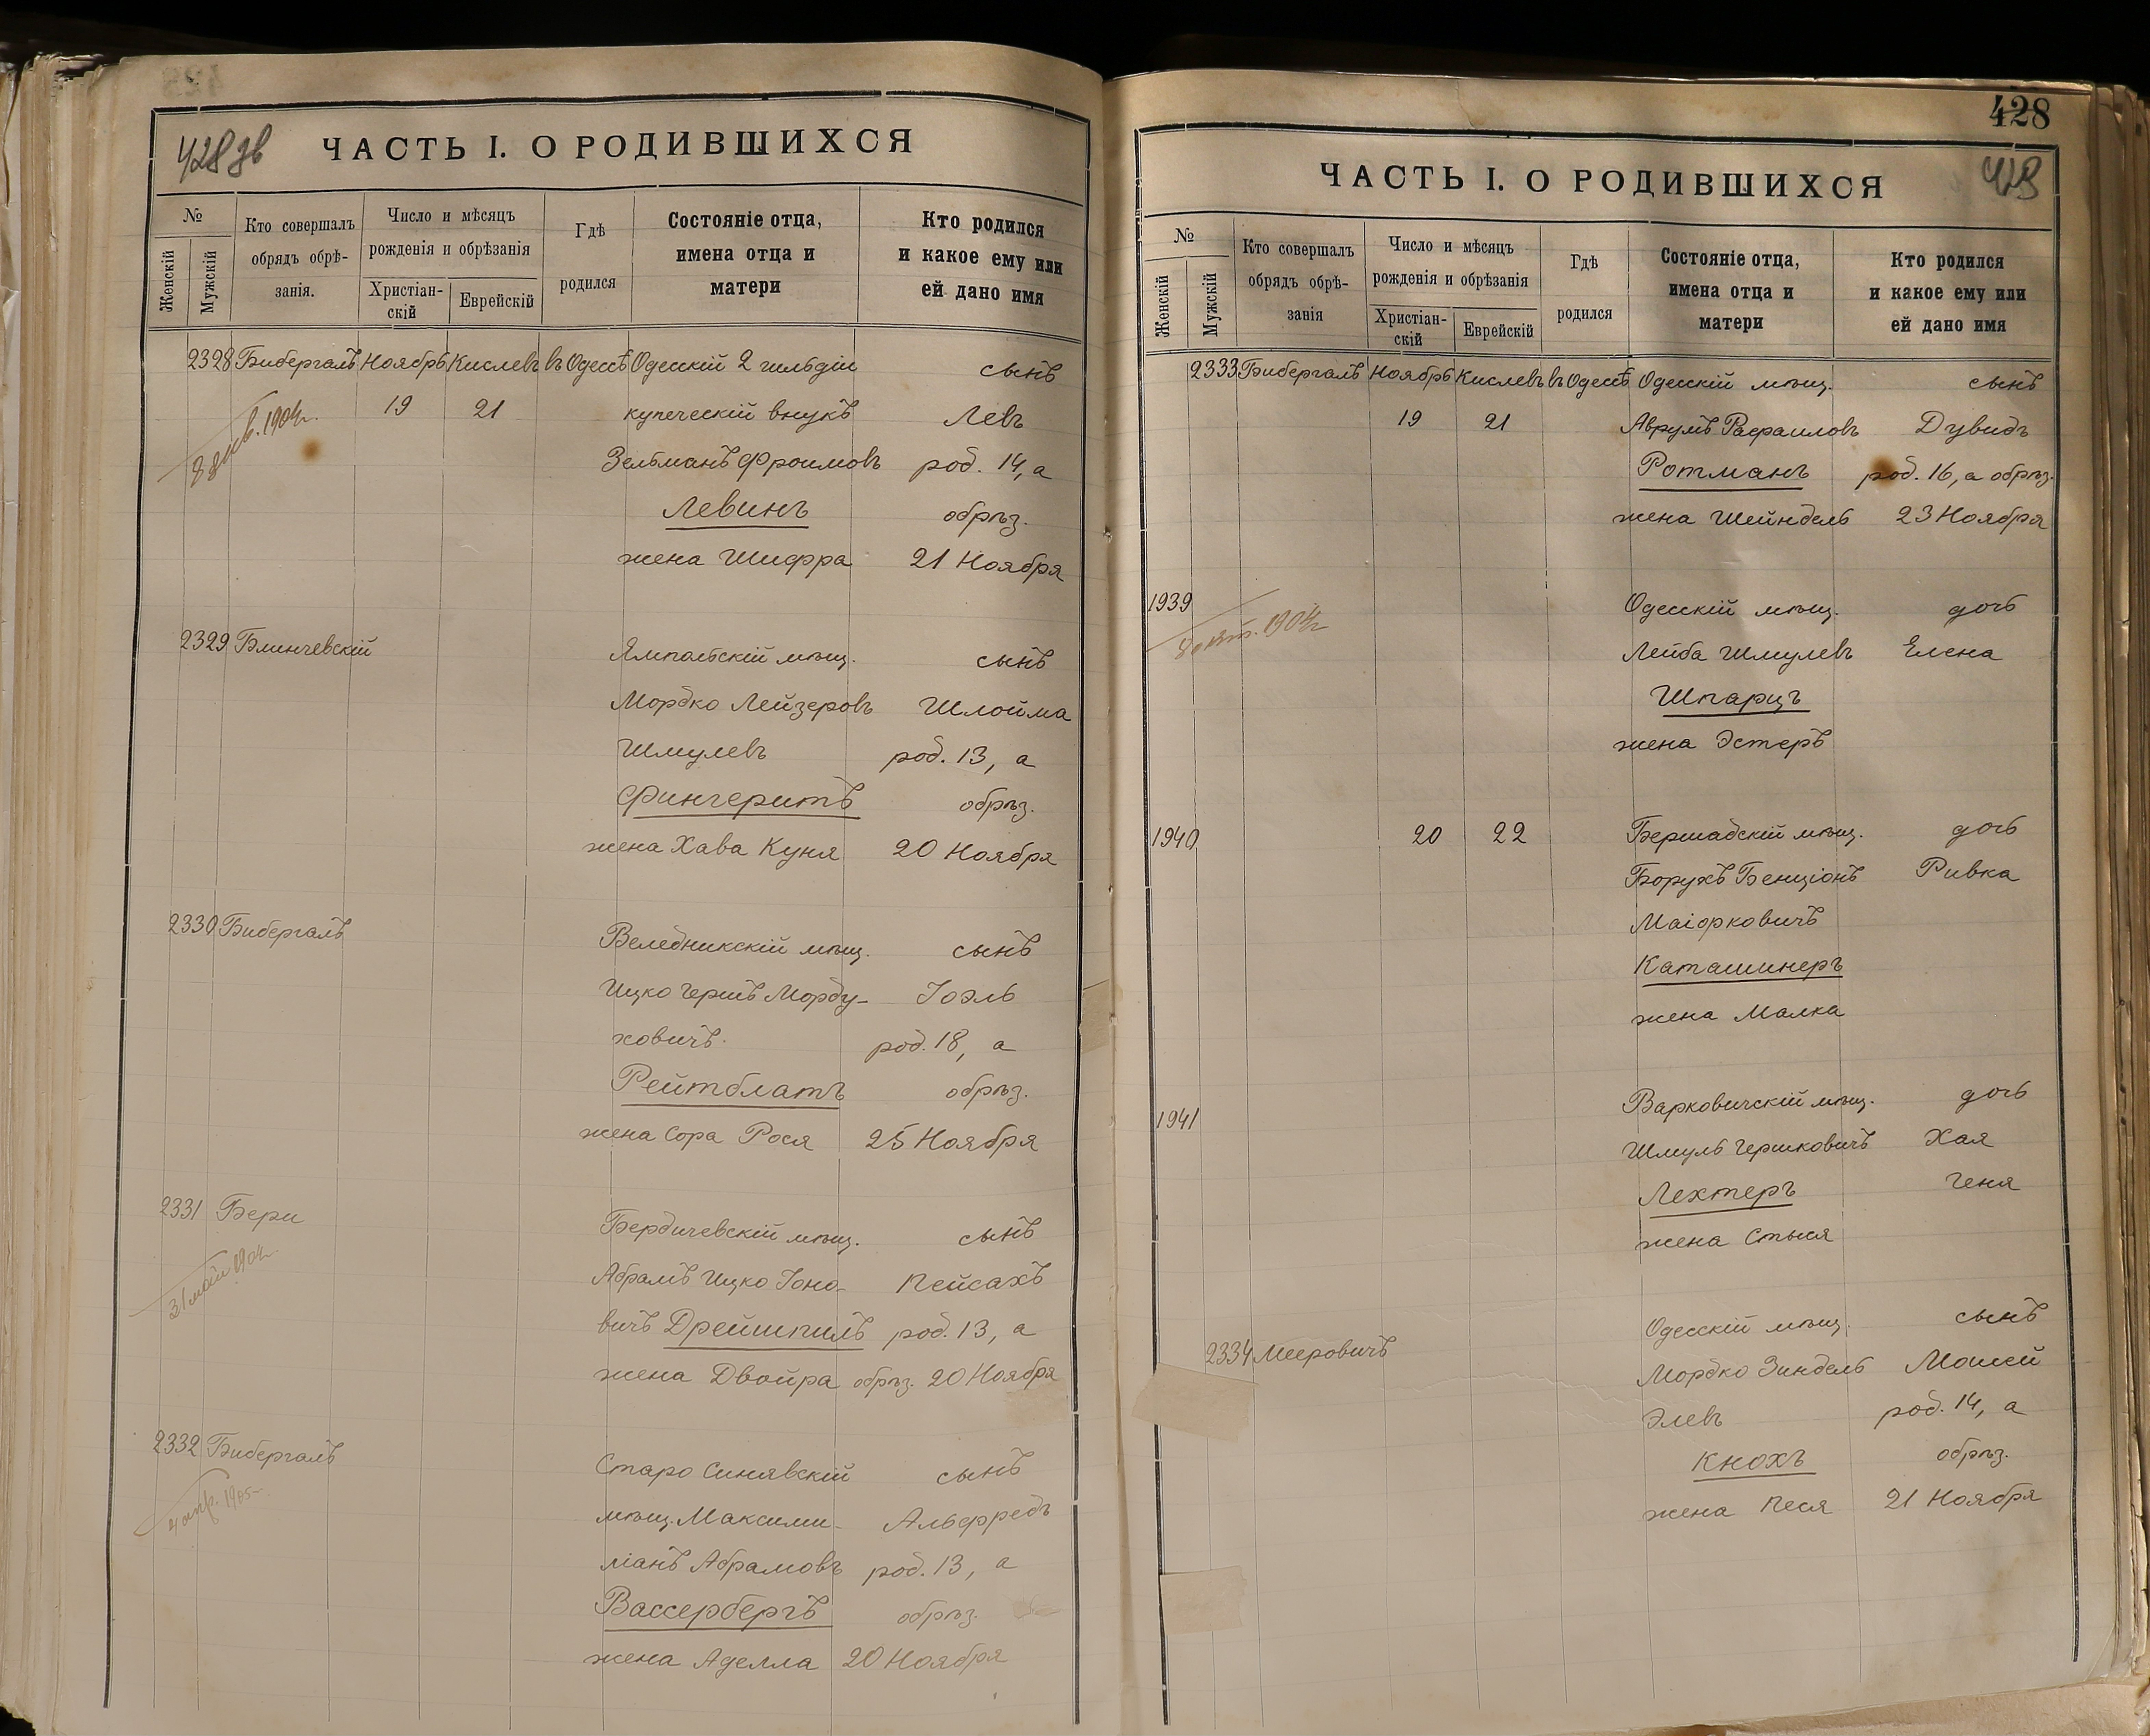 428 зв
ЧАСТЬ I. О РОДИВШИХСЯ
№
Женскій
Мужскій
Кто совершалъ
обрядъ обрѣ-
занія.
Число и мѣсяцъ
рожденія и обрѣзанія
Христіан-
скій
Еврейскій
Гдѣ
родился
Состояніе отца,
имена отца и
матери
Кто родился
и какое ему или
ей дано имя
2328 Бибергалъ Ноябрь Кислевъ въ Одессѣ Одесскій 2 гильдіи сынъ
19 21 купеческій внукъ Левъ
1904г.
Зельманъ Фроимовъ род. 14, а
Левинъ обрѣз.
жена Шифра 21 Ноября
2329 Блинчевскій Ямпольскій мѣщ. сынъ
Мордко Лейзеровъ Шлойма
Шмулевъ род. 13, а
Фингеритъ обрѣз.
жена Хава Куня 20 Ноября
2330 Бибергалъ Веледникскій мѣщ. сынъ
Ицко Гершъ Морду- Іоэль
ховичъ. род. 18, а
Рейтблатъ обрѣз.
жена Сора Рося 25 Ноября
2331 Бери Бердичевскій мѣщ. сынъ
31 май 1904г.
Абрамъ Ицко Іоно- Пейсахъ
вичъ Дрейшпилъ род. 13, а
жена Двойра обрѣз. 20 Ноября
2332 Бибергалъ Старо Синявскій сынъ
4 апр. 1905г.
мѣщ. Максими- Альфредъ
ліанъ Абрамовъ род. 13, а
Вассербергъ обрѣз.
жена Аделла 20 Ноября
428
ЧАСТЬ I. О РОДИВШИХСЯ
№
Женскій
Мужскій
Кто совершалъ
обрядъ обрѣ-
занія
Число и мѣсяцъ
рожденія и обрѣзанія
Христіан-
скій
Еврейскій
Гдѣ
родился
Состояніе отца,
имена отца и
матери
Кто родился
и какое ему или
ей дано имя
2333 Бибергалъ Ноябрь Кислевъ въ Одессѣ Одесскій мѣщ. сынъ
19 21 Аврумъ Рафаиловъ Дувидъ
Ротманъ род. 16, а обрѣз.
жена Шейндель 23 Ноября
1939 Одесскій мѣщ. дочь
1904г
Лейба Шмулевъ Елена
Шпарцъ
жена Эстеръ
1940 20 22 Бершадскій мѣщ. дочь
Борухъ Бенціонъ Ривка
Маіорковичъ
Каташинеръ
жена Малка
1941 Варковичскій мѣщ. дочь
Шмуль Гершковичъ Хая
Лехтеръ Геня
жена Стыся
Одесскій мѣщ. сынъ
2334 Мееровичъ Мордко Зиндель Мошей
Элевъ род. 14, а
Кнохъ обрѣз.
жена Песя 21 Ноября